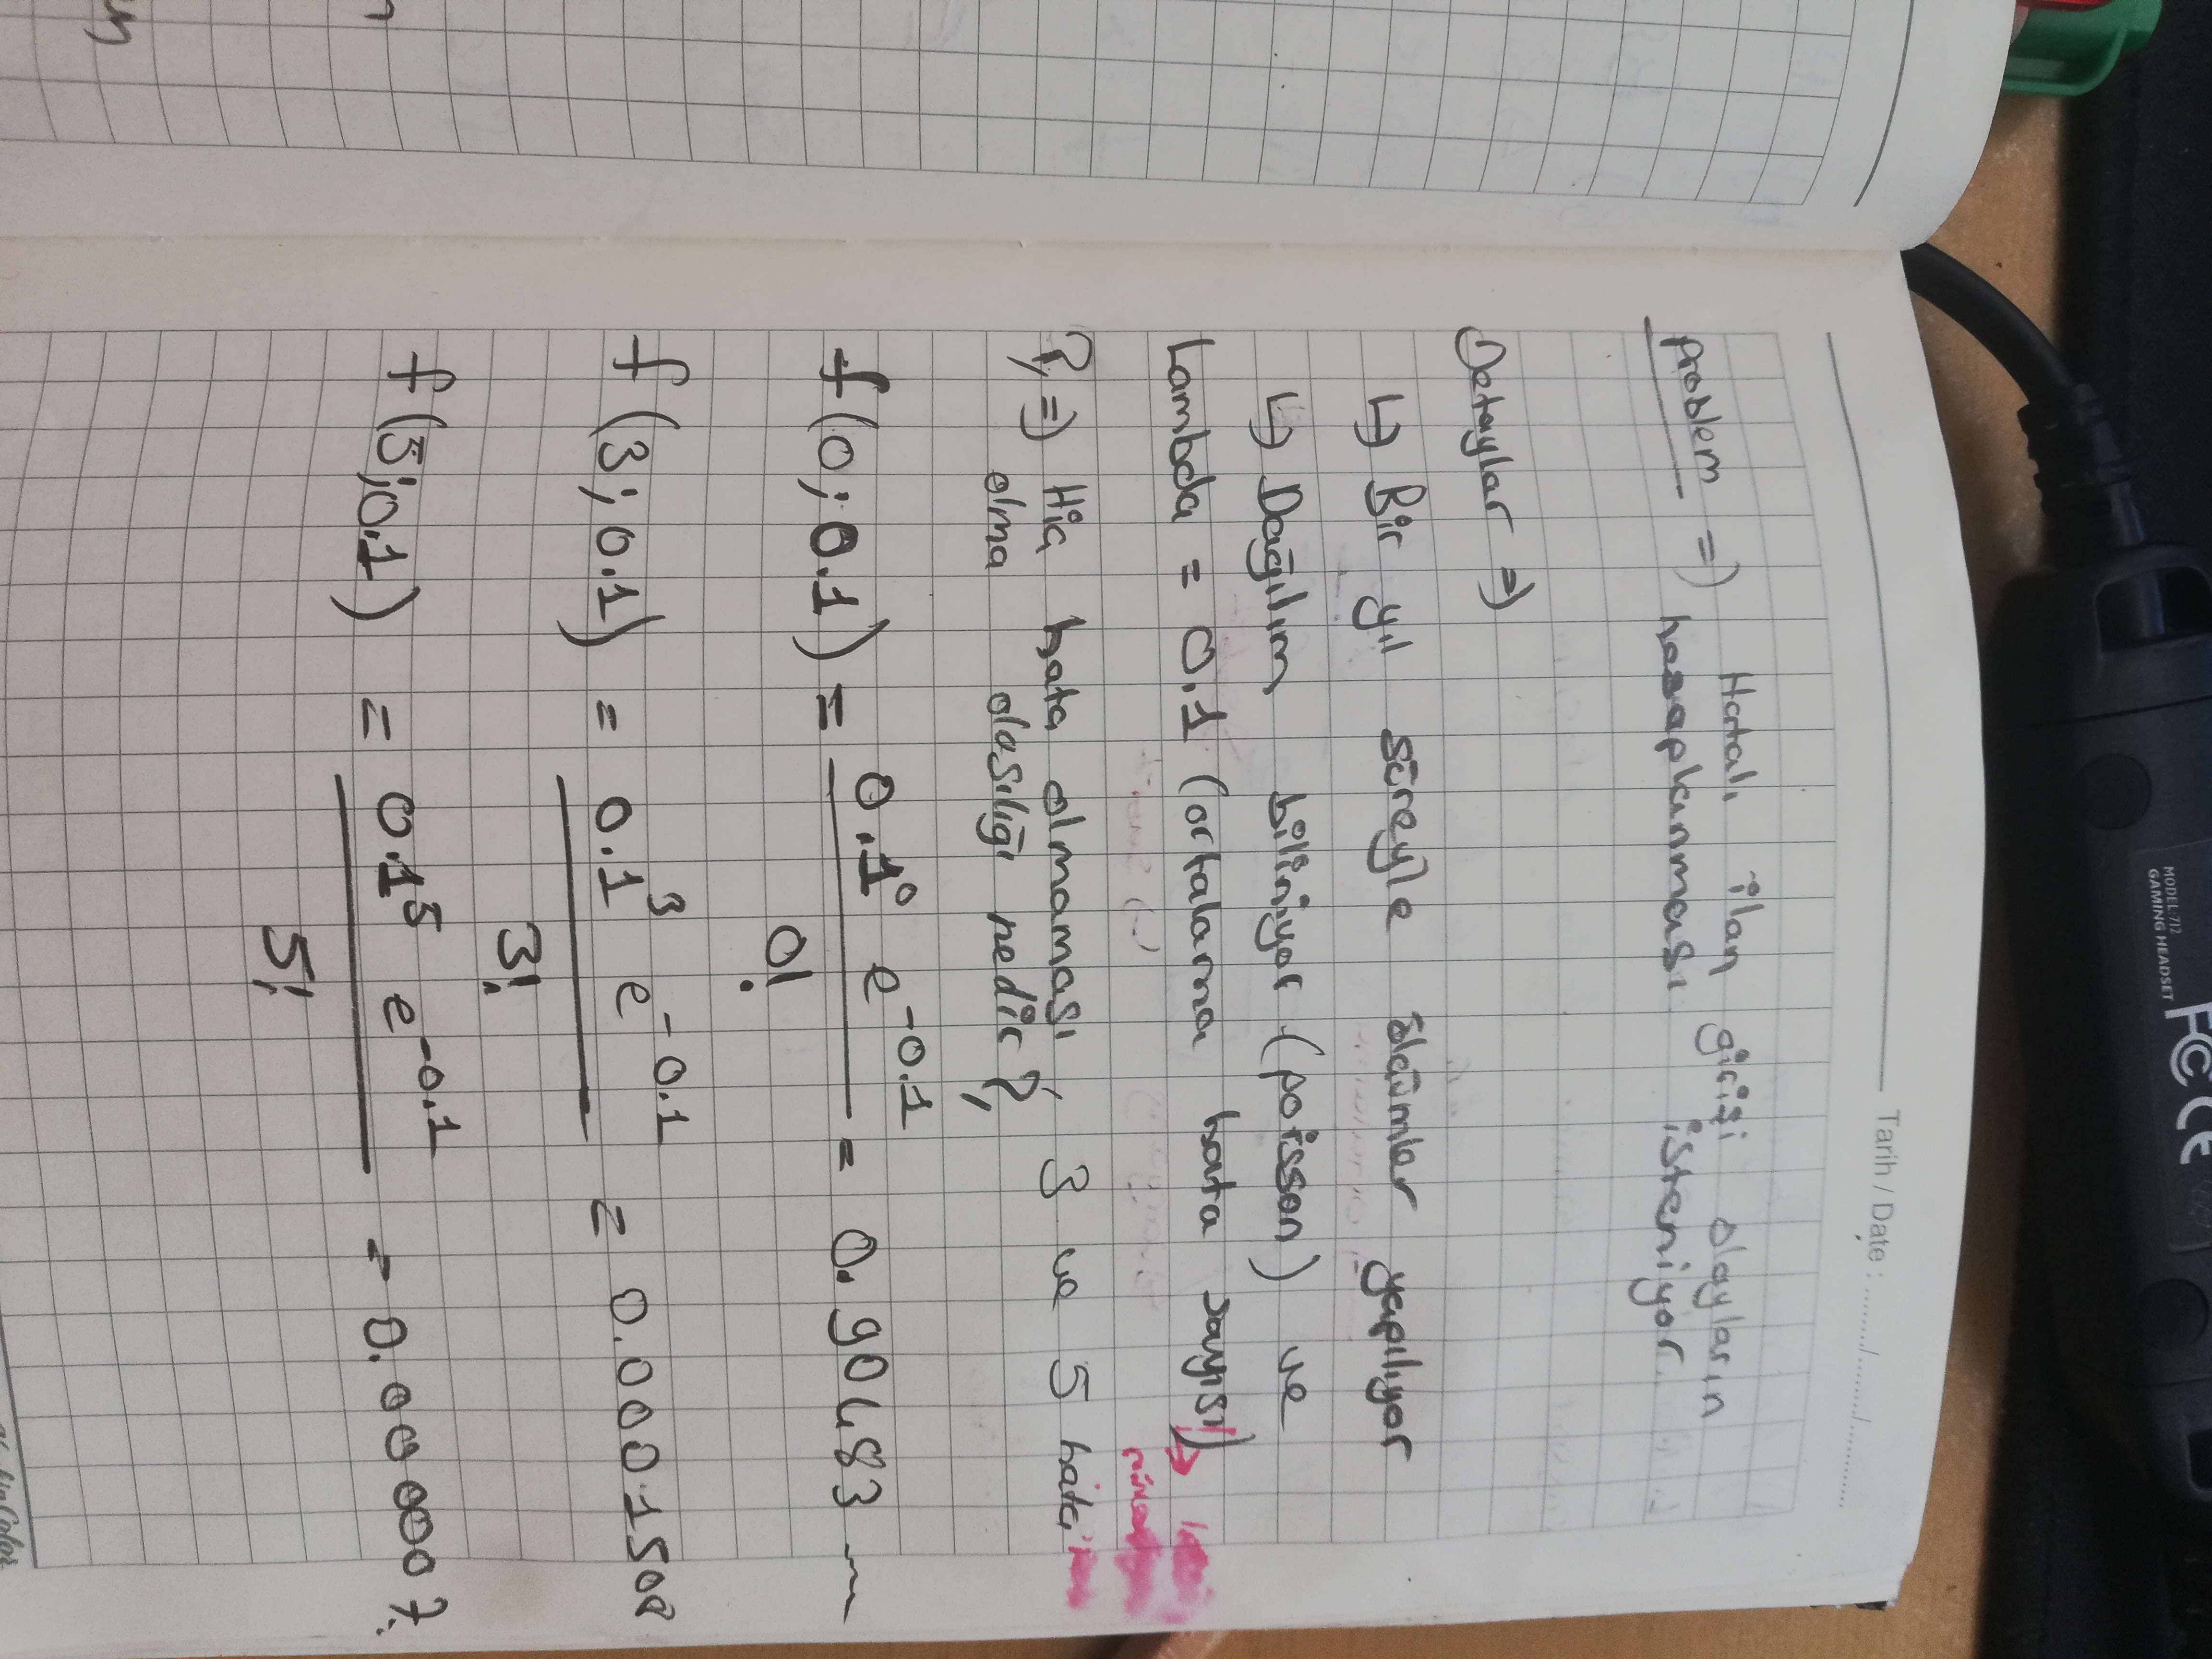 MODEL:712
GAMING HEADSET
FC CE
Tarih / Date : ......../......../............
problem => Hatalı ilan girişi olayların
hesaplanması isteniyor.
Detaylar =>
↳ Bir yıl süreyle ölçümler yapılıyor
↳ Dağılım biliniyor (poisson) ve
Lambda = 0.1 (ortalama hata sayısı)
? => Hiç hata olmaması, 3 ve 5 hata
olma olasılığı nedir?
f(0;0.1) = 0.1⁰ e^-0.1 / 0! = 0.90483
f(3;0.1) = 0.1³ e^-0.1 / 3! = 0.0001508
f(5;0.1) = 0.1⁵ e^-0.1 / 5! = 0.0000007